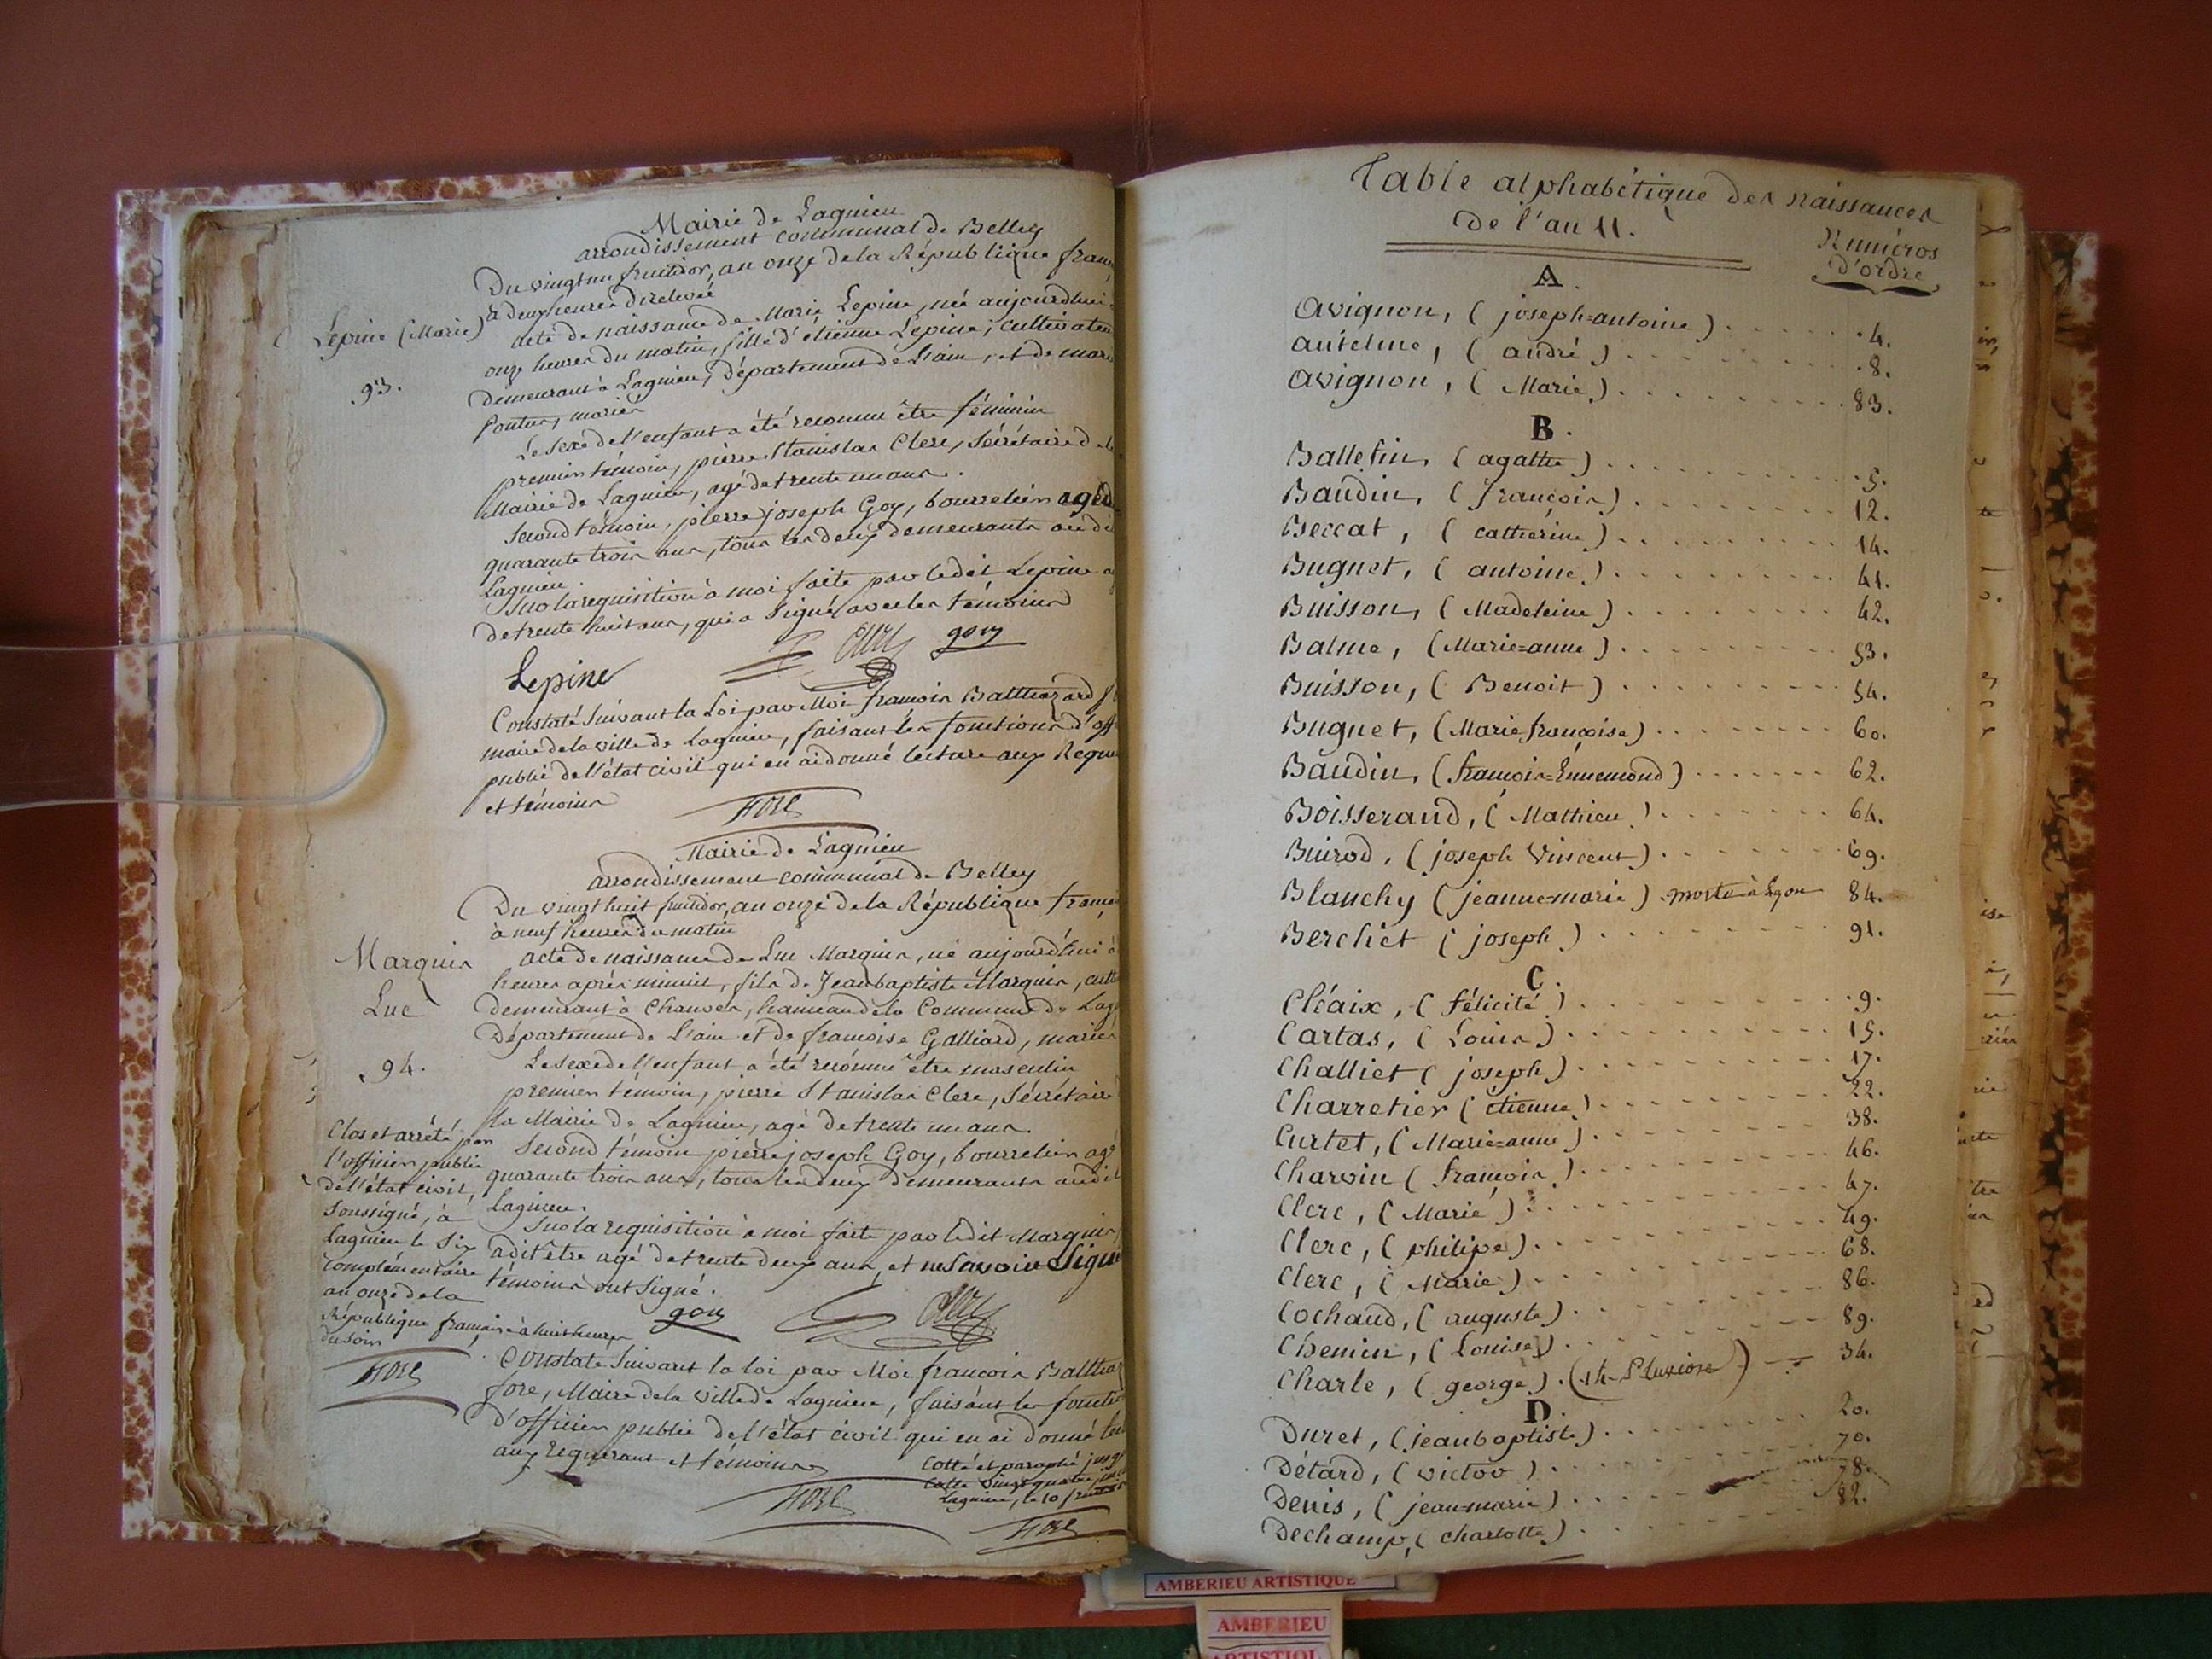 Mairie de Lagnieu
arrondissement communal de Belley
Du vingt un fructidor, an onze de la République fran
à deux heures de relevée
Lepine (Marie)
93.
acte de naissance de Marie Lepine, née aujourdhui
onze heures du matin, fille d'étienne Lepine, cultivateu
demeurant à Lagnieu, département de l'ain, et de marie
mariés
Le sexe de l'enfant a été reconnu être féminin
premier témoin, pierre Stanislas Clerc, Sécrétaire de
Mairie de Lagnieu, agé de trente un ans.
Second témoin, pierre joseph Goy, bourrelier agé d
quarante trois ans, tous les deux demeurants au di
Lagnieu.
Sur la requisition à moi faite par ledit Lepine a
de trente huit ans, qui a Signé avec les témoins
Clerc goy
Lepine
Constaté Suivant la Loi par Moi françois Balthazard f
maire de la ville de Lagnieu, faisant les fonctions d'off
public de l'état civil qui en ai donné lecture aux Requ
et témoins
FORE
Mairie de Lagnieu
arrondissement communal de Belley
Du vingt huit fructidor, an onze de la République françai
à neuf heures du matin
Marquis
Luc
94.
acte de naissance de Luc Marquis, né aujourd'hui à
heures après minuit, fils de Jean baptiste Marquis, cult
demeurant à Chanves, hameau de la Commune de Lag
Département de L'ain et de francoise Galliard, mariés
Le sexe de l'enfant a été reconnu être masculin
premier témoin, pierre Stanislas Clerc, Sécrétaire
la Mairie de Lagnieu, agé de trente un ans.
Second témoin pierre joseph Goy, bourrelier agé
quarante trois ans, tous les deux demeurants audit
Lagnieu.
Sur la requisition à moi faite par ledit Marquis
a dit être agé de trente deux ans, et ne Savoir Signe
témoins ont Signé.
goy Clerc
Clos et arrêté par
l'officier public
de l'état civil,
Soussigné, à
Lagnieu le Six
complémentaire
an onze de la
République française à huit heures
du soir
FORE
Constaté Suivant la loi par Moi françois Baltha
fore, Maire de la Ville de Lagnieu, faisant les foncti
d'officier public de l'état civil qui en ai donné lec
aux requerant et témoins
Cotté et paraphé jusq
Cotte vingt quatre
Lagnieu, le 10
FORE
FORE
Table alphabétique des naissances
de l'an 11.
Numéros
d'ordre
A.
Avignon, (joseph=antoine) 4.
antelme, (andré) 8.
Avignon, (Marie) 83.
B.
Ballefin, (agathe) 5.
Baudin, (françois) 12.
Beccat, (catherine) 14.
Bugnet, (antoine) 41.
Buisson, (Madeleine) 42.
Balme, (Marie=anne) 53.
Buisson, (Benoit) 54.
Bugnet, (Marie françoise) 60.
Baudin, (françois=Ennemond) 62.
Boisserand, (Mathieu) 64.
Buirod, (joseph Vincent) 69.
Blanchy (jeanne=marie) morte à Lyon 84.
Berchet (joseph) 91.
C.
Cléaix, (félicité) 9.
Cartas, (Louis) 15.
Challiet (joseph) 17.
Charretier (étienne) 22.
Curtet, (Marie=anne) 38.
Charvin (françois) 46.
Clerc, (Marie) 47.
Clerc, (philipe) 49.
Clerc, (Marie) 68.
Cochaud, (auguste) 86.
Chemin, (Louise) 89.
Charle, (george) (14 Pluviose) 34.
D.
Duret, (jean baptiste) 20.
Détard, (victor) 70.
Denis, (jean=marie) 78.
Dechamp, (charlotte) 82.
AMBERIEU ARTISTIQUE
AMBERIEU
ARTISTIQU